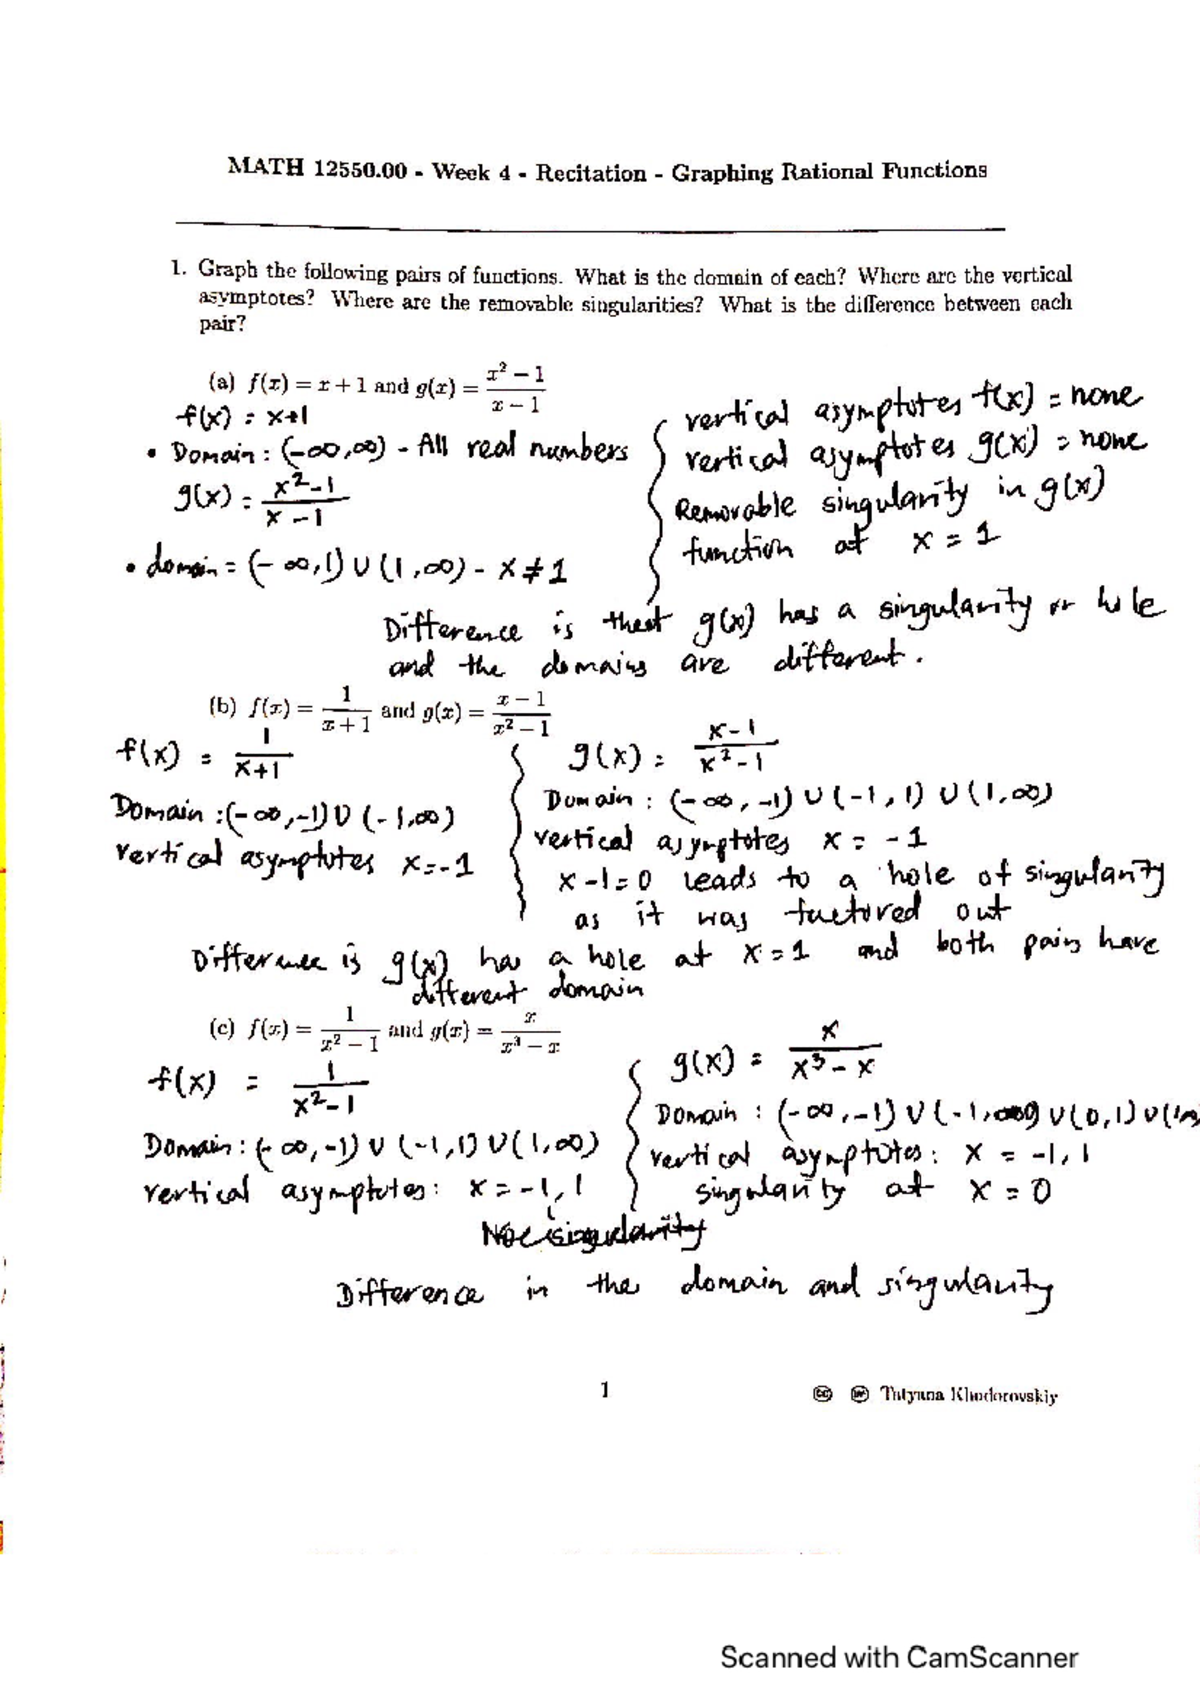 MATH 12550.00 - Week 4 - Recitation - Graphing Rational Functions
1. Graph the following pairs of functions. What is the domain of each? Where are the vertical
asymptotes? Where are the removable singularities? What is the difference between each
pair?
(a) f(x) = x + 1 and g(x) = (x² − 1)/(x − 1)
f(x) = x+1
• Domain : (-∞,∞) - All real numbers
g(x) = (x²-1)/(x-1)
• domain = (-∞,1) ∪ (1,∞) - x ≠ 1
vertical asymptotes f(x) = none
vertical asymptotes g(x) = none
Removable singularity in g(x)
function at x = 1
Difference is that g(x) has a singularity or hole
and the domains are different.
(b) f(x) = 1/(x + 1) and g(x) = (x − 1)/(x² − 1)
f(x) = 1/(x+1)
Domain : (-∞,-1) ∪ (-1,∞)
vertical asymptotes x=-1
g(x) = (x-1)/(x²-1)
Domain : (-∞,-1) ∪ (-1,1) ∪ (1,∞)
vertical asymptotes x = -1
x-1=0 leads to a hole of singularity
as it was factored out
Difference is g(x) has a hole at x=1 and both pairs have
different domain
(c) f(x) = 1/(x² − 1) and g(x) = x/(x³ − x)
f(x) = 1/(x²-1)
Domain : (-∞,-1) ∪ (-1,1) ∪ (1,∞)
vertical asymptotes: x = -1,1
g(x) = x/(x³-x)
Domain : (-∞,-1) ∪ (-1,0) ∪ (0,1) ∪ (1
vertical asymptotes: x = -1,1
singularity at x = 0
singularity
Difference in the domain and singularity
1
Tatyana Khodorovskiy
Scanned with CamScanner